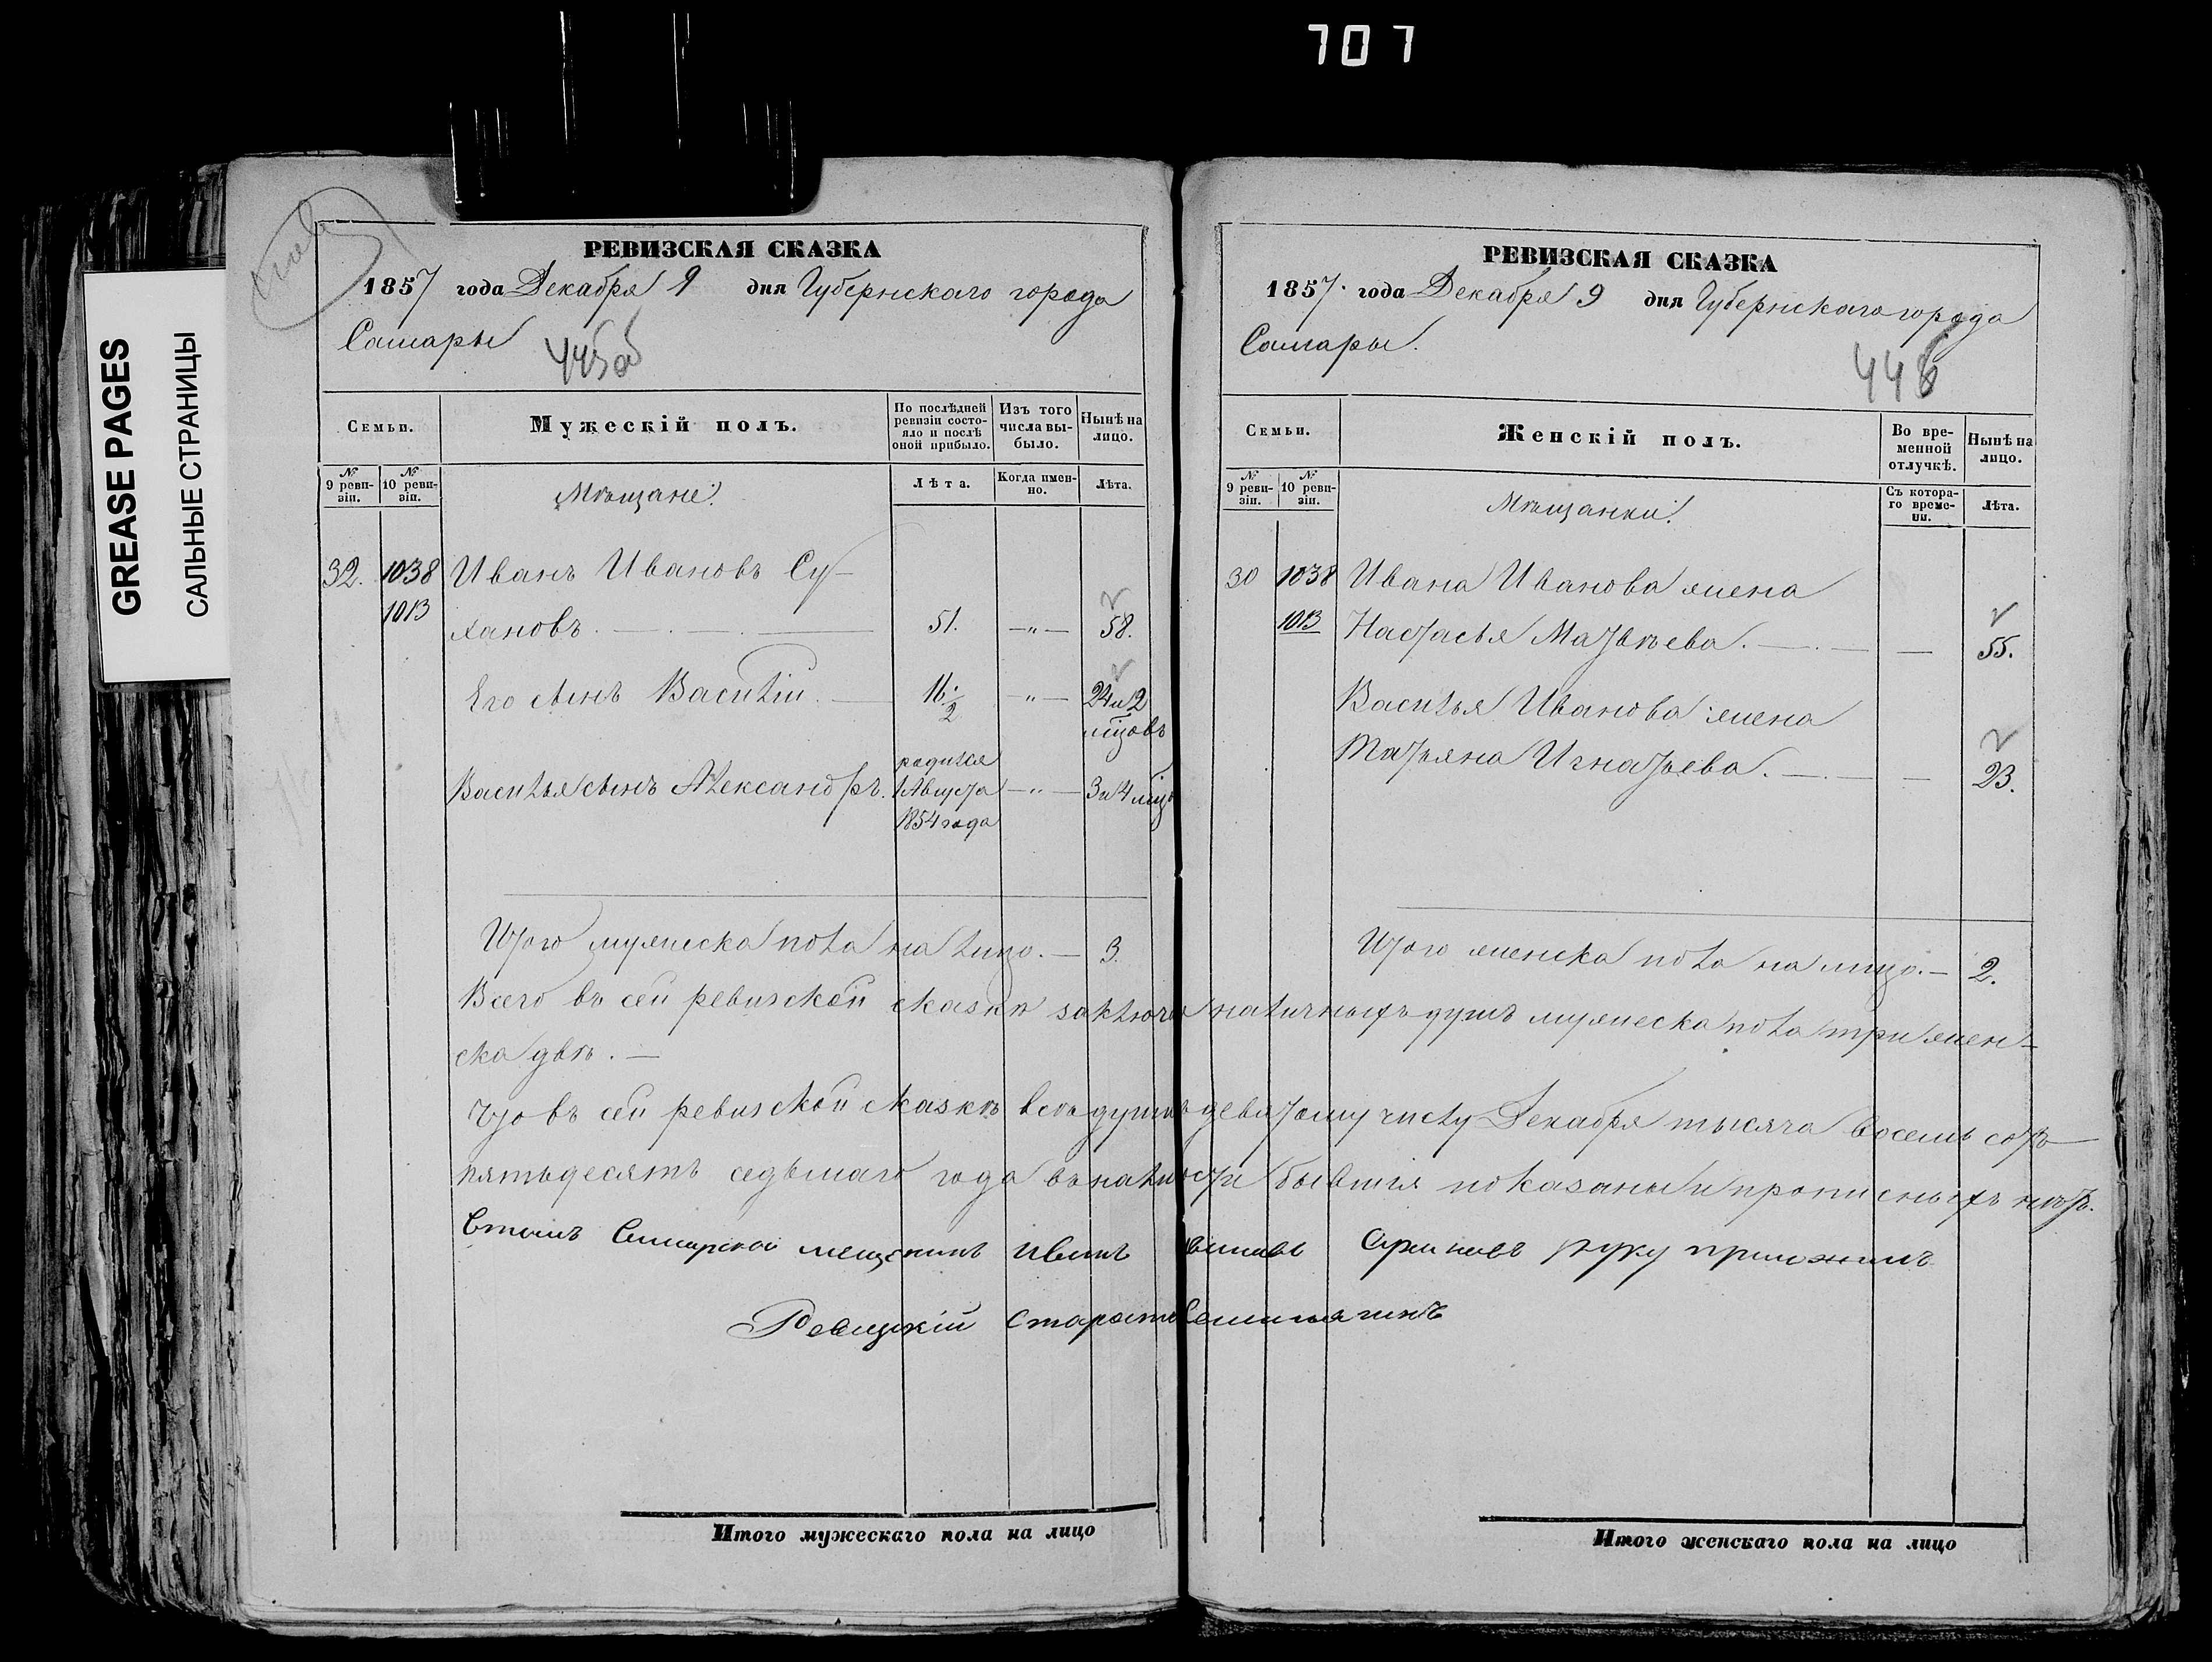 707
GREASE PAGES
САЛЬНЫЕ СТРАНИЦЫ
РЕВИЗСКАЯ СКАЗКА
1857 года Декабря 9 дня Губернскаго города
Самары
445об
Семьи.
Мужескій полъ.
По послѣдней ревизіи состояло и послѣ оной прибыло.
Изъ того числа выбыло.
Нынѣ на лицо.
№ 9 ревизіи.
№ 10 ревизіи.
Мѣщане:
Лѣта.
Когда именно.
Лѣта.
32. 1038 Иванъ Ивановъ Су-
1013 хановъ. 51. —"— 58.
Его сынъ Василій. 16 1/2 —"— 24 и 2
мѣцовъ
Василья сынъ Александръ. родился 1 Августа 1854 года —"— 3 и 4 мѣц
Итого мужеска пола на лицо. — 3.
РЕВИЗСКАЯ СКАЗКА
1857. года Декабря 9 дня Губернскаго города
Самары.
446
Семьи.
Женскій полъ.
Во временной отлучкѣ.
Нынѣ на лицо.
№ 9 ревизіи.
№ 10 ревизіи.
Мѣщанки:
Съ котораго времени.
Лѣта.
30 1038 Ивана Иванова жена
1013 Настасья Матвѣева. — 55.
Василья Иванова жена
Татьяна Игнатьева. — 23.
Итого женска пола на лицо. — 2.
Всего въ сей ревизской сказкѣ заключ наличныхъ душъ мужеска пола три женъ-
ска двѣ. —
Что въ сей ревизской сказкѣ всѣ души девятому числу Декабря тысяча восемь сотъ
пятьдесятъ седьмаго года въ налицости бывшія показаны и прописныхъ нѣтъ.
мещенинъ Иванъ Ивановъ Сухановъ руку приложилъ
Ревизкій Староста
Итого мужескаго пола на лицо
Итого женскаго пола на лицо